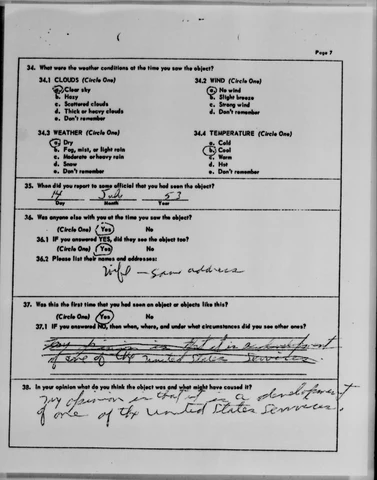 Page 7
34. What were the weather conditions at the time you saw the object?
34.1 CLOUDS (Circle One) 34.2 WIND (Circle One)
a. Clear sky a. No wind
b. Hazy b. Slight breeze
c. Scattered clouds c. Strong wind
d. Thick or heavy clouds d. Don't remember
e. Don't remember
34.3 WEATHER (Circle One) 34.4 TEMPERATURE (Circle One)
a. Dry a. Cold
b. Fog, mist, or light rain b. Cool
c. Moderate or heavy rain c. Warm
d. Snow d. Hot
e. Don't remember e. Don't remember
35. When did you report to some official that you had seen the object?
14 July 53
Day Month Year
36. Was anyone else with you at the time you saw the object?
(Circle One) Yes No
36.1 IF you answered YES, did they see the object too?
(Circle One) Yes No
36.2 Please list their names and addresses:
Wife - same address
37. Was this the first time that you had seen an object or objects like this?
(Circle One) Yes No
37.1 IF you answered NO, then when, where, and under what circumstances did you see other ones?
My opinion is that it is a development
of one of the United States Services.
38. In your opinion what do you think the object was and what might have caused it?
My opinion is that it is a development
of one of the United States Services.